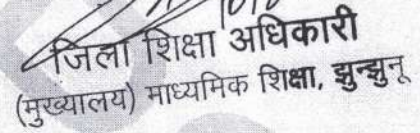 जिला शिक्षा अधिकारी
(मुख्यालय) माध्यमिक शिक्षा, झुन्झुनू